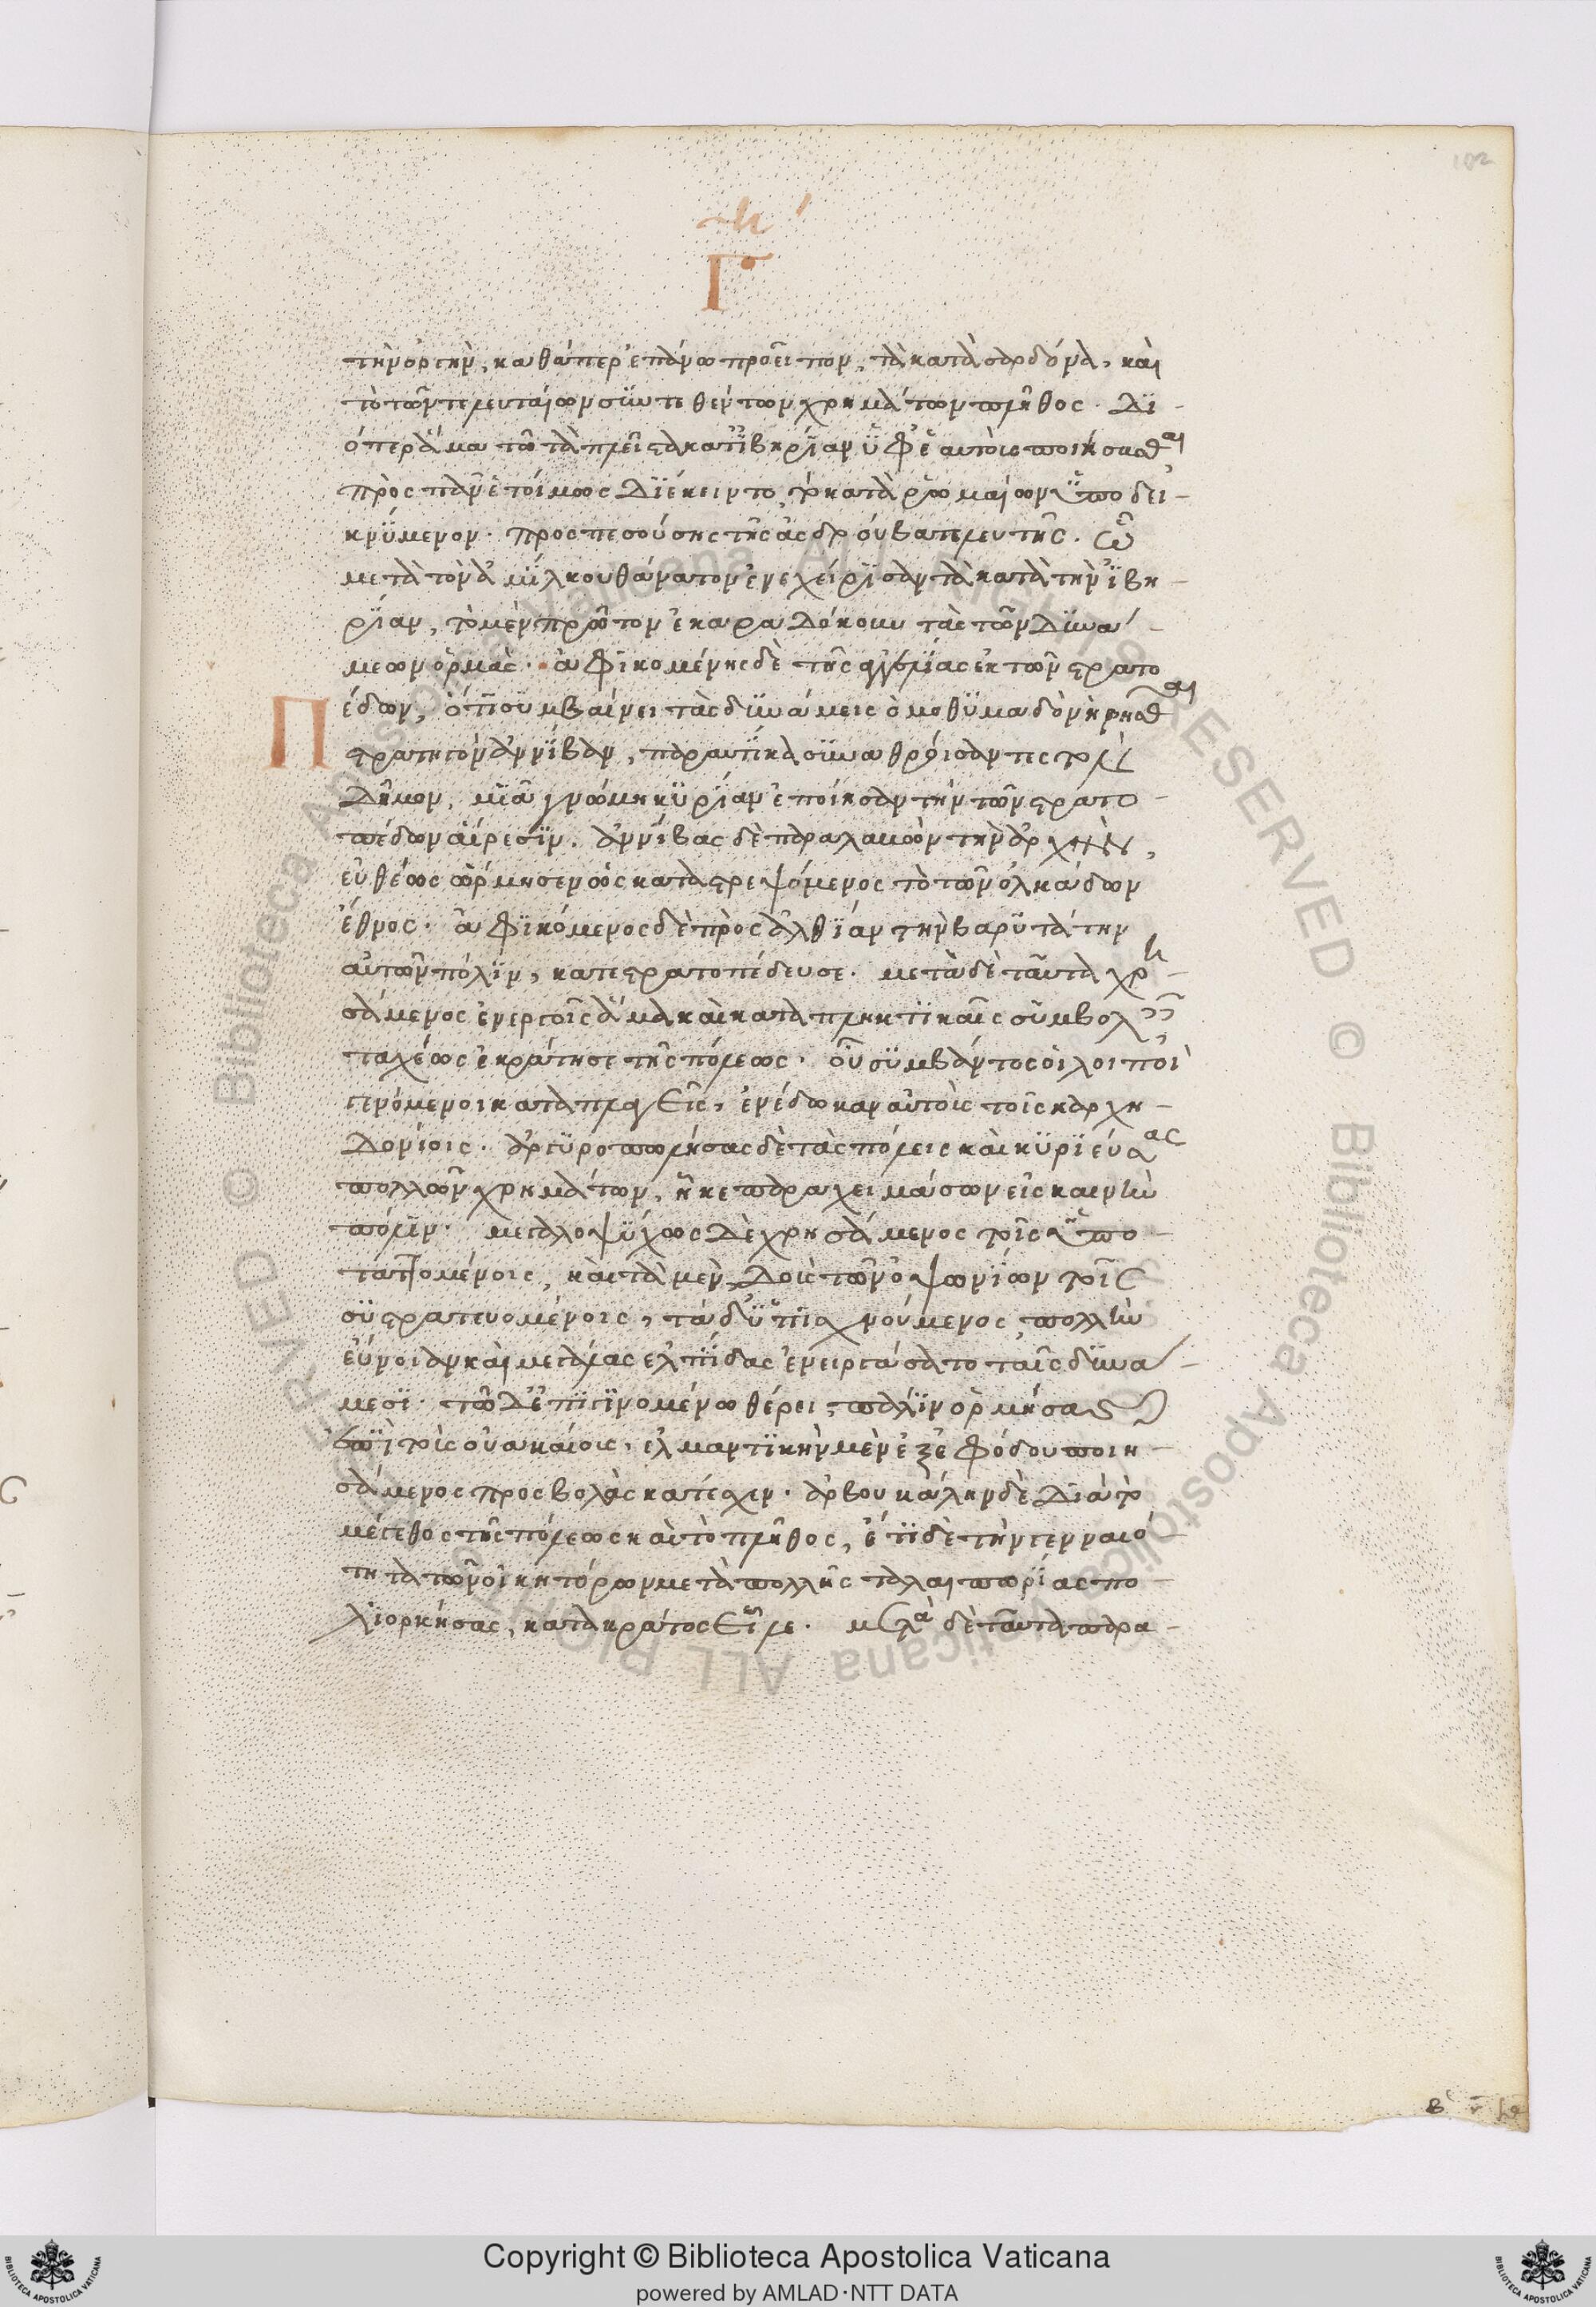 102
η´
Γ
τὴν ὀργὴν, καθάπερ ἐπάνω προεῖπον, τὰ κατὰ σαρδόνα, καὶ
τὸ τῶν τελευταίων συντεθέντων χρημάτων πλῆθος. δι-
όπερ ἅμα τῶ τὰ πλεῖστα κατ' ἰβηρίαν ὑφ' ἑαυτοὺς ποιήσασθαι
πρὸς πᾶν ἑτοίμως διέκειντο τὸ κατὰ ῥωμαίων ὑποδει-
κνύμενον. προσπεσούσης τῆς ἀσδρούβα τελευτῆς. ὧ
μετὰ τὸν ἀμίλκου θάνατον ἐνεχείρισαν τὰ κατὰ τὴν ἰβη-
ρίαν, τὸ μὲν πρῶτον ἐκαραδόκουν τὰς τῶν δυνά-
μεων ὁρμάς. ἀφικομένης δὲ τῆς ἀγγελίας ἐκ τῶν στρατο
πέδων, ὅτι συμβαίνει τὰς δυνάμεις ὁμοθυμαδὸν ἡρῆσθαι
στρατηγὸν ἀννίβαν, παραυτίκα συναθροίσαντες τὸν
δῆμον, μιᾶ γνώμη κυρίαν ἐποίησαν τὴν τῶν στρατο-
πέδων αἵρεσιν. ἀννίβας δὲ παραλαβὼν τὴν ἀρχὴν,
εὐθέως ὥρμησεν ὡς καταστρεψόμενος τὸ τῶν ὀλκάδων
ἔθνος. ἀφικόμενος δὲ πρὸς ἀλθίαν τὴν βαρυτάτην
αὐτῶν πόλιν, κατεστρατοπέδευσε. μετὰ δὲ ταῦτα χρη-
σάμενος ἐνεργοῖς ἅμα καὶ καταπληκτικαῖς συμβολαῖς
ταχέως ἐκράτησε τῆς πόλεως. οὗ συμβάντος οἱ λοιποὶ
γενόμενοι καταπλαγεῖς, ἐνέδωκαν αὑτοὺς τοῖς καρχη-
δονίοις. ἀργυρολογήσας δὲ τὰς πόλεις καὶ κυριεύσας
πολλῶν χρημάτων, ἧκε παραχειμάσων εἰς καινὴν
πόλιν. μεγαλοψύχως δὲ χρησάμενος τοῖς ὑπο-
ταττομένοις, καὶ τὰ μὲν δοὺς τῶν ὀψωνίων τοῖς
συστρατευομένοις, τὰ δ' ὑπισχνούμενος, πολλὴν
εὔνοιαν καὶ μεγάλας ἐλπίδας ἐνειργάσατο ταῖς δυνά-
μεσι. τῶ δ' ἐπιγινομένω θέρει, πάλιν ὁρμήσας
ἐπὶ τοὺς οὐακαίους, ἑλμαντικὴν μὲν ἐξ ἐφόδου ποιη-
σάμενος προσβολὰς κατέσχεν. ἀρβουκάλην δὲ διὰ τὸ
μέγεθος τῆς πόλεως καὶ τὸ πλῆθος, ἔτι δὲ τὴν γενναιό-
τητα τῶν οἰκητόρων μετὰ πολλῆς ταλαιπωρίας πο-
λιορκήσας, κατὰ κράτος εἷλε. μετὰ δὲ ταῦτα παρα-
Copyright © Biblioteca Apostolica Vaticana
powered by AMLAD·NTT DATA